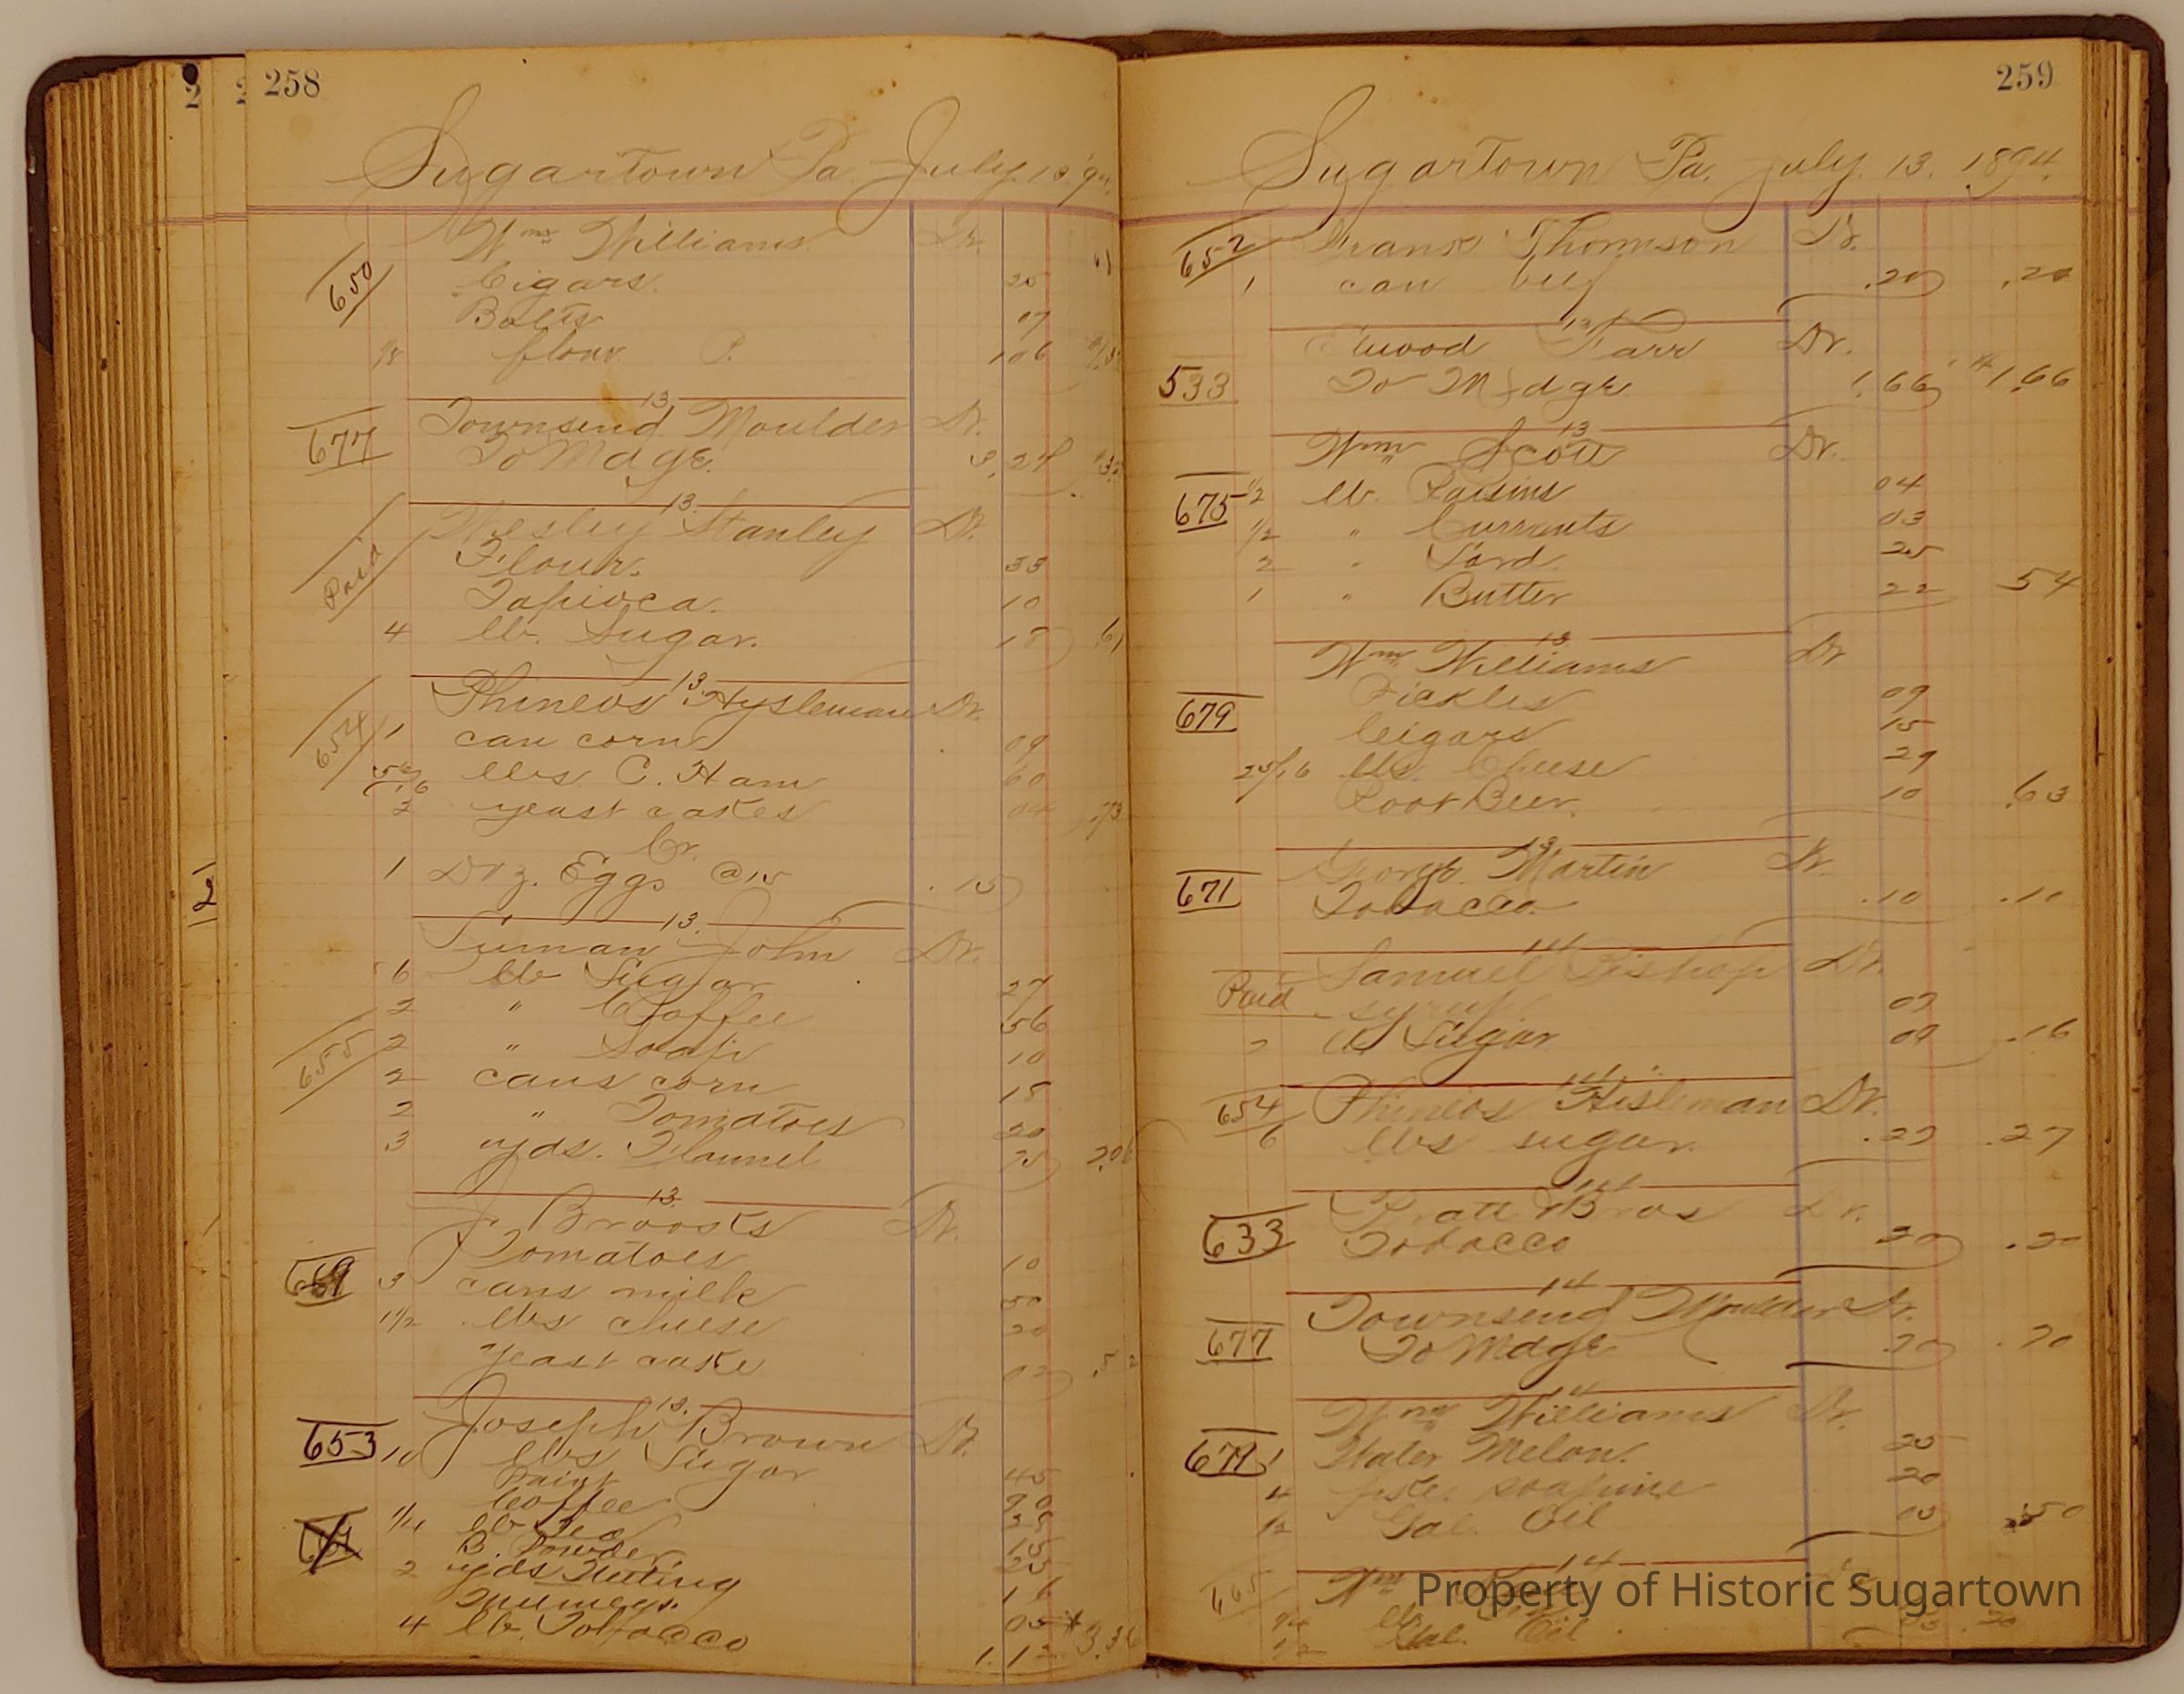 258
Sugartown Pa. July 13, 94.
Wm Williams. Dr.
650 Cigars. 25
Bolts 07
1/8 flour P. 106
13.
Townsend Moulder Dr.
677 To Mdge. 3.24
13.
Wesley Stanley Dr.
Paid Flour. 33
Tapioca. 10
4 lb. Sugar. 18 61
13.
Phineos Hysleman Dr.
654 1 can corn 09
lbs. C. Ham 60
2 yeast cakes 04 .73
Cr.
1 Doz. Eggs @15 .15
13.
Tuman John Dr.
6 lb Sugar 27
2 " Coffee 56
655 2 " Soap 10
2 cans corn 18
2 " Tomatoes 20
3 yds. Flannel 75 2.06
13.
J Brooks Dr.
Tomatoes 10
3 cans milk 50
1 1/2 lbs cheese 20
yeast cake 02
13.
Joseph Brown Dr.
653 10 lbs Sugar 45
Paint 90
Coffee 28
1/4 lb Tea 15
B. Powder 25
2 yds 16
Nutmegs. 05
4 lb. Tobacco 1.12
259
Sugartown Pa. July. 13. 1894.
652 Frank Thomson Dr.
1 can beef .20 .20
13
Elwood Farr Dr.
533 To Mdge 1.66 1.66
13
Wm Scott Dr.
675 1/2 lb. Raisins 04
1/2 " Currants 03
2 " Lard 25
1 " Butter 22 54
13
Wm Williams Dr
Pickles 09
679 Cigars 15
25/16 lbs. Cheese 29
Root Beer. 10 .63
13
George Martin Dr.
671 Tobacco .10 .10
14
Samuel Bishop Dr.
Paid syrup 07
2 lb Sugar 09 .16
14
654 Phineos Hisleman Dr.
6 lbs sugar. .27 .27
14
Pratt Bros Dr.
633 Tobacco 20 .20
14
Townsend Moulder Dr.
677 To Mdge .70 .70
14
Wm Williams Dr.
679 1 Water Melon. 25
4 pks. soapine 20
1/2 Gal. Oil 05 50
14
665 Wm
1/4 lb
1/2 Gal. Oil
Property of Historic Sugartown